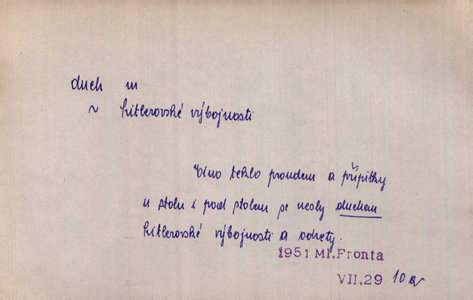 duch m
~ hitlerovské výbojnosti
Víno teklo proudem a přípitky
u stolu i pod stolem se nesly duchem
hitlerovské výbojnosti a odvety.
1951 Ml.Fronta
VII.29 10